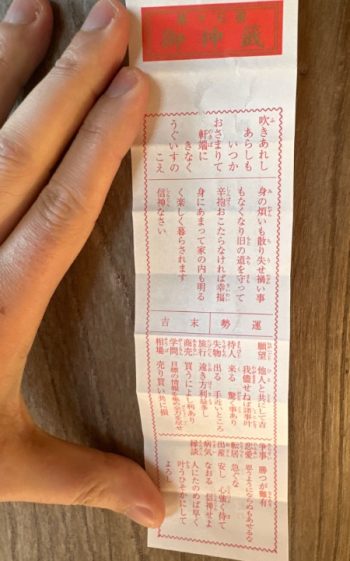 御神籤
吹きあれし
あらしも
いつか
おさまりて
軒端に
きなく
うぐいすの
こえ
身の煩いも散り失せ禍い事
もなくなり旧の道を守って
辛抱おこたらなければ幸福
身にあまって家の内も明る
く楽しく暮らされます
信神なさい
運勢 末吉
願望 他人と共にして吉
我儘せねば諸事叶
待人 来る 驚く事あり
失物 出る 手近いところ
旅行 遠き方利益多し
商売 買うによし利あり
学問 目標の情報を集め全力を尽せ
相場 売り買い共に損
争事 勝つが難有
恋愛 思うようにならぬもあせるな
転居 急ぐな
出産 安し 心強く待て
病気 なおる 信神せよ
縁談 人にたのめば早く
叶うひそかにして
よろし